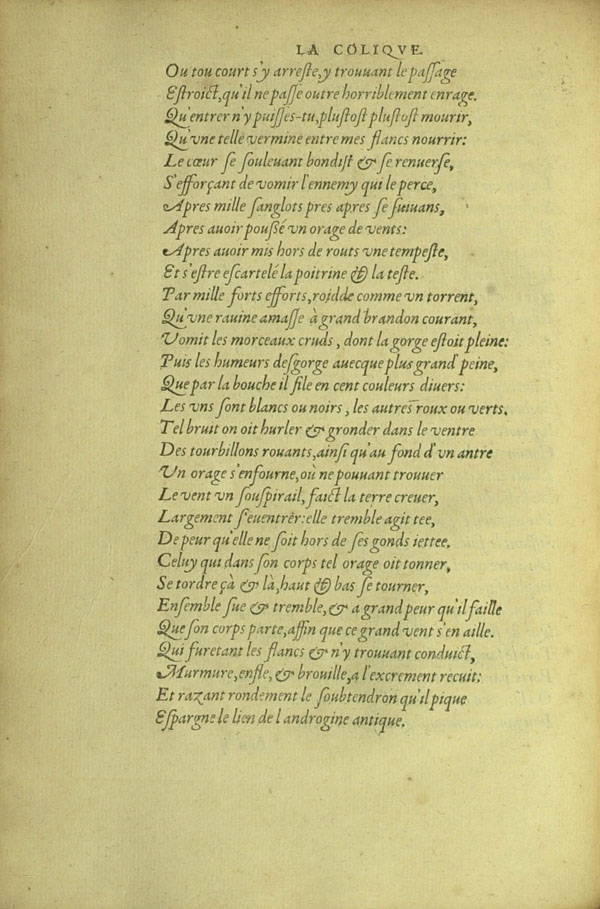 LA COLIQVE.
Ou tou court s'y arreſte, y trouuant le paſſage
Eſtroict, qu'il ne paſſe outre horriblement enrage.
Qu'entrer n'y puiſſes-tu, pluſtoſt pluſtoſt mourir,
Qu'vne telle vermine entre mes flancs nourrir:
Le cœur ſe ſouleuant bondiſt & ſe renuerſe,
S'efforçant de vomir l'ennemy qui le perce,
Apres mille ſanglots pres apres ſe ſuiuans,
Apres auoir pouſſé vn orage de vents:
Apres auoir mis hors de routs vne tempeſte,
Et s'eſtre eſcartelé la poitrine & la teſte.
Par mille forts efforts, roidde comme vn torrent,
Qu'vne rauine amaſſe à grand brandon courant,
Vomit les morceaux cruds, dont la gorge eſtoit pleine:
Puis les humeurs deſgorge auecque plus grand' peine,
Que par la bouche il file en cent couleurs diuers:
Les vns ſont blancs ou noirs, les autres roux ou verts.
Tel bruit on oit hurler & gronder dans le ventre
Des tourbillons rouants, ainſi qu'au fond d'vn antre
Vn orage s'enfourne, où ne pouuant trouuer
Le vent vn ſouſpirail, faict la terre creuer,
Largement ſ'euentrér: elle tremble agit tee,
De peur qu'elle ne ſoit hors de ſes gonds iettee.
Celuy qui dans ſon corps tel orage oit tonner,
Se tordre çà & là, haut & bas ſe tourner,
Enſemble ſue & tremble, & a grand peur qu'il faille
Que ſon corps parte, affin que ce grand vent s'en aille.
Qui furetant les flancs & n'y trouuant conduict,
Murmure, enfle, & brouille, a l'excrement recuit:
Et razant rondement le ſoubtendron qu'il pique
Eſpargne le lien de l androgine antique.